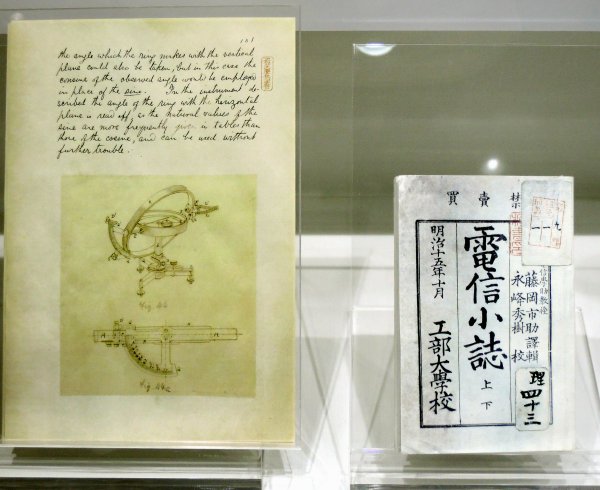 121
the angle which the ring makes with the vertical
plane could also be taken, but in this case the
cosine of the observed angle would be employed
in place of the sine. In the instrument de-
scribed the angle of the ring with the horizontal
plane is read off, as the natural values of the
sine are more frequently given in tables than
those of the cosine, and can be used without
further trouble.
Fig. 44
Fig. 44a
禁賣買
明治十五年十月
電信小誌
上下
工部大學校
藤岡市助譯輯
永峰秀樹校
一一九
理
四十三